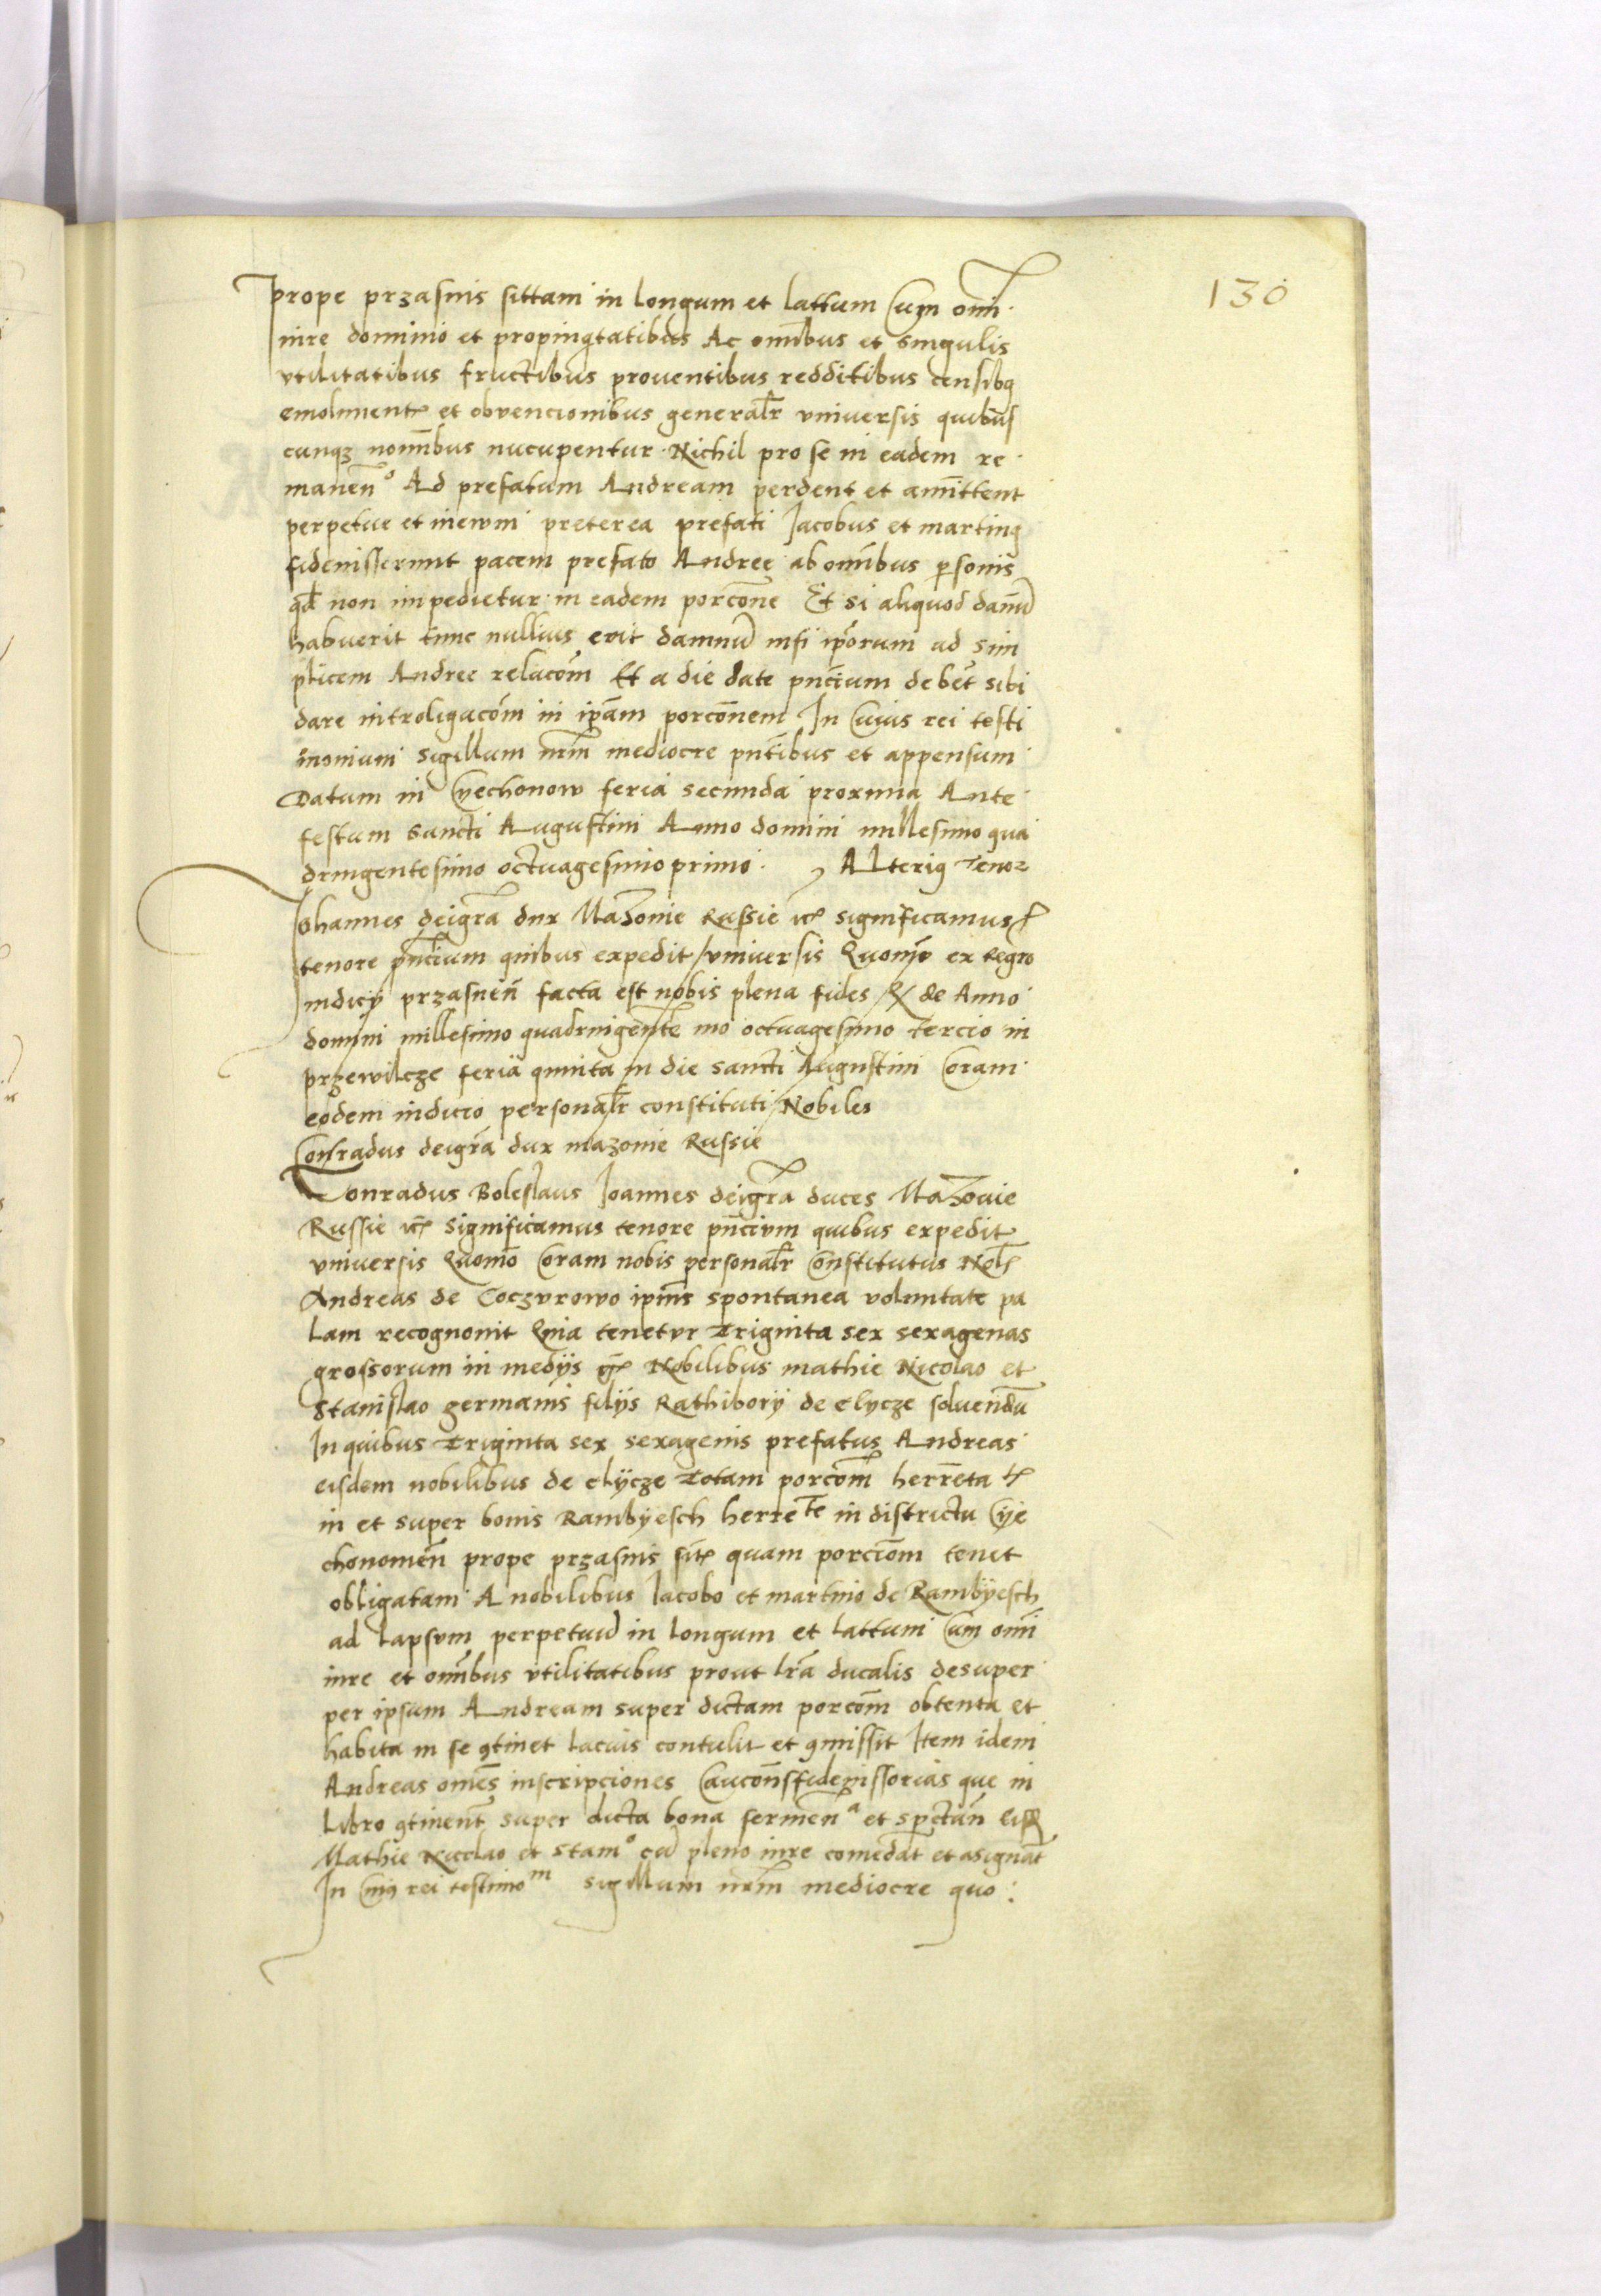 130
prope przasnis sittam in longum et lattum Cum omī
iure dominio et propinqtatibus Ac omībus et singulis
vtilitatibus fructibus prouentibus redditibus censibq
emolument et obvencionibus generalr vniuersis quibus
cunqz nomībus nucupentur Nichil pro se in eadem re
manenº Ad prefatum Andream perdent et amittent
perpetue et inewm preterea prefati Jacobus et martinq
fideiusserunt pacem prefato Andree ab omībus psonis
qd non impedietur in eadem porcone Et si aliquod danū
habuerit tunc nullius erit damnū nisi ipōrum ad sim
plicem Andree relacōm Et a die date pntium debet sibi
dare introligacōm in ipam porconem In Cuius rei testi
monium sigillum nrm mediocre pntibus et appensum
Datum in Cyechonow feria secunda proxima Ante
festum sancti Augustini Anno domini millesimo qua
dringentesimo octuagesimo primo Alteriq Tenor
Johannes deigra dux Mazouie Russie etc significamus
tenore pntium quibus expedit vniuersis Quomo ex Regro
iudicij przasnen facta est nobis plena fides de Anno
domini millesimo quadringente mo octuagesimo tercio in
przewilcze feria quinta in die sancti Augustini Coram
eodem iudicio personalr constituti Nobiles
Conradus deigra dux mazouie Russie
Conradus Boleslaus Joannes deigra duces Mazouie
Russie etc significamus tenore pncium quibus expedit
vniuersis Quomo Coram nobis personalr Constitutus Nol
Andreas de Coczurowo ipius spontanea voluntate pa
lam recognouit Quia tenetur Triginta sex sexagenas
grossorum in medijs gr Nobilibus mathie Nicolao et
Stanislao germanis filijs Rathiborij de elycze soluendū
In quibus Triginta sex sexagenis prefatus Andreas
eisdem nobilibus de elycze Totam porcom herreta
in et super bonis Rambyesch herrete in districtu Cye
chonomen prope przasnis sit quam porciom tenet
obligatam A nobilibus Jacobo et martino de Rambyesch
ad lapsum perpetuū in longum et lattum Cum omī
iure et omībus vtilitatibus prout lra ducalis desuper
per ipsum Andream super dictam porcom obtenta et
habita in se 9tinet lacius contulit et 9missit Item idem
Andreas omes inscripciones Caucons fideiussorias que in
libro 9tinent super dicta bona et
Mathie Nicolao et Stam° cū pleno iure comēdat et asignat
In Cuiq rei testimom sigillum nrm mediocre quo :